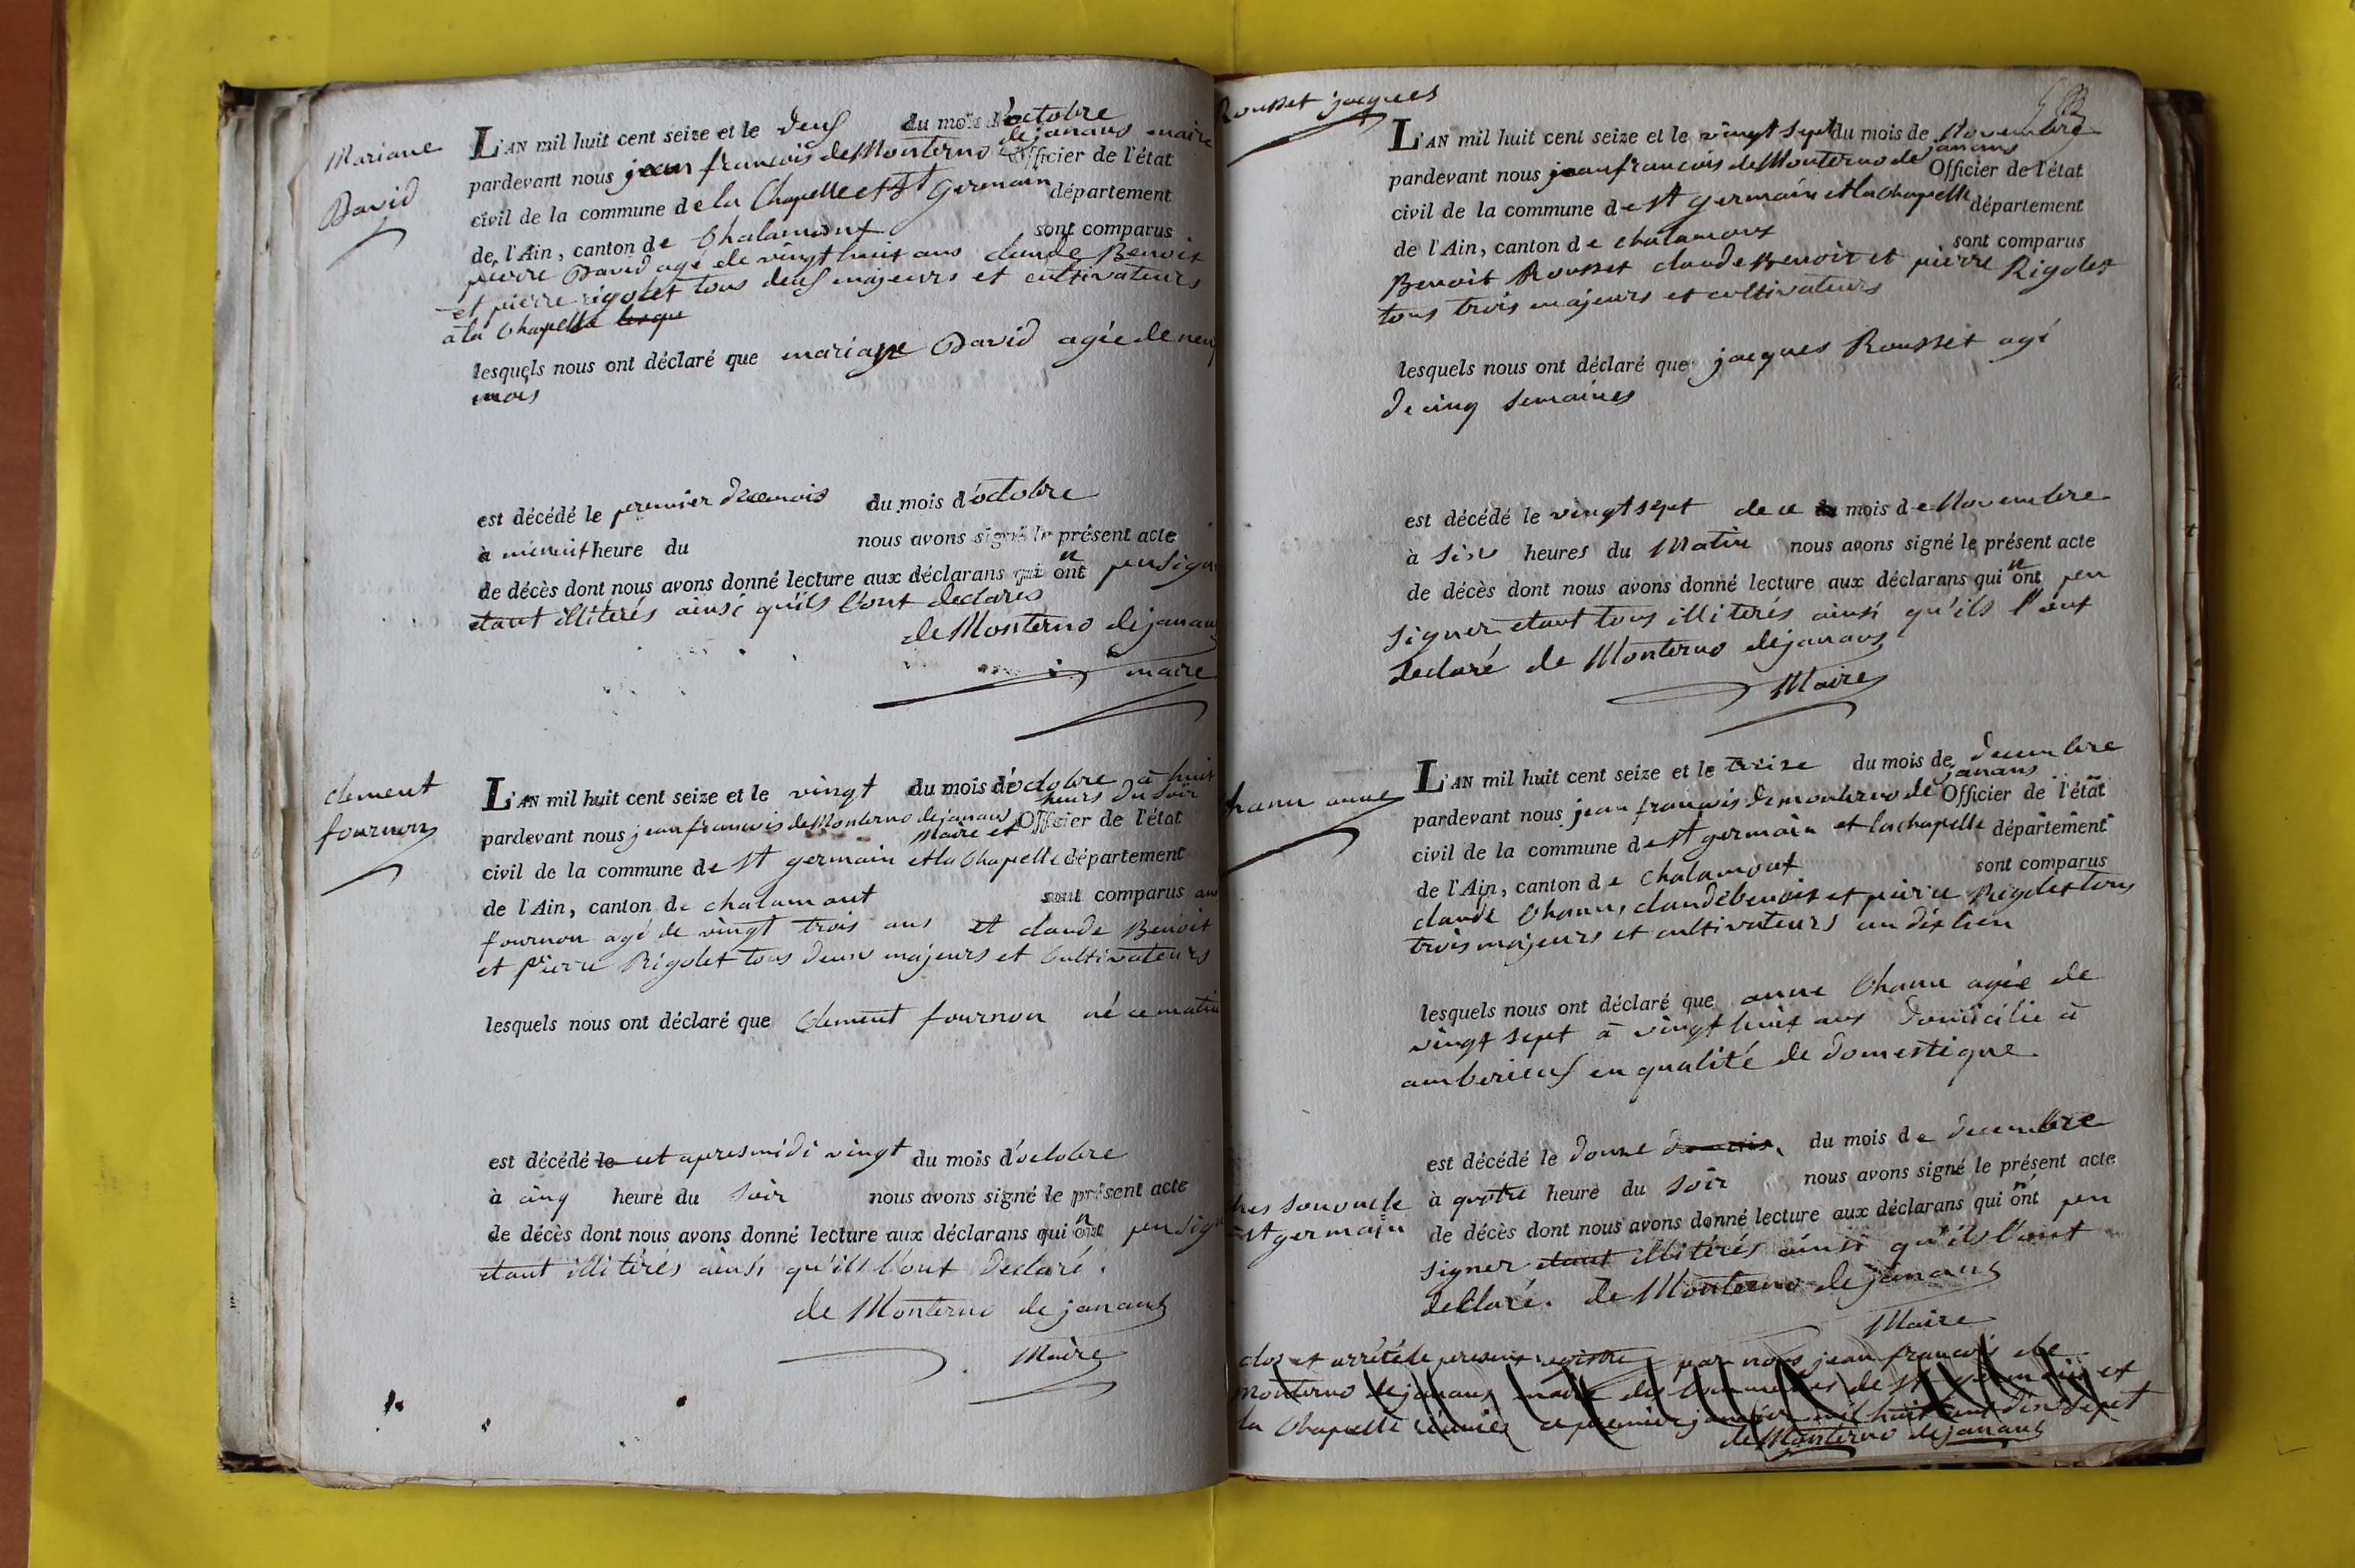 Mariane
David
L'AN mil huit cent seize et le deuf du mois d'octobre
pardevant nous jean francois de Monterno de janans maire Officier de l'état
civil de la commune de la Chapelle et St germain département
de l'Ain, canton de Chalamont sont comparus
pierre David agé de vingt huit ans claude Benoit
et pierre rigolet tous deuf majeurs et cultivateurs
a la Chapelle lesque
lesquels nous ont déclaré que mariane David agée de neuf
mois
est décédé le premier du mois d'octobre
à minuit heure du nous avons signé le présent acte
de décès dont nous avons donné lecture aux déclarans qui n'ont peu signer
etant illitérés ainsi qu'ils l'ont declarés
de Monterno de janans
maire
Clement
fournon
L'AN mil huit cent seize et le vingt du mois d'octobre à huit
heurs du soir
pardevant nous jean francois de Monterno de janans Maire et Officier de l'état
civil de la commune de St germain et la Chapelle département
de l'Ain, canton de chalamont sont comparus
fournon agé de vingt trois ans et claude Benoit
et pierre Rigolet tous deux majeurs et Cultivateurs
lesquels nous ont déclaré que Clement fournon né ce matin
est décédé le cet apres midi vingt du mois d'octobre
à cinq heure du soir nous avons signé le présent acte
de décès dont nous avons donné lecture aux déclarans qui n'ont peu signer
etant illitérés ainsi qu'ils l'ont declaré.
de Monterno de janans
Maire
Rousset jacques
L'AN mil huit cent seize et le vingt sept du mois de Novembre
pardevant nous jean francois de Monterno de janans Officier de l'état
civil de la commune de St germain et la chapelle département
de l'Ain, canton de chalamont sont comparus
Benoit Rousset claude Benoit et pierre Rigolet
tous trois majeurs et cultivateurs
lesquels nous ont déclaré que jacques Rousset agé
de cinq semaines
est décédé le vingt sept de ce du mois de Novembre
à six heures du Matin nous avons signé le présent acte
de décès dont nous avons donné lecture aux déclarans qui n'ont peu
signer etant tous illitérés ainsi qu'ils l'ont
declaré de Monterno de janans
Maire
Chanu anne
L'AN mil huit cent seize et le treize du mois de decembre
pardevant nous jean francois de monterno de janans Officier de l'état
civil de la commune de St germain et la chapelle département
de l'Ain, canton de Chalamont sont comparus
claude Chanu, claude benoit et pierre Rigolet tous
trois majeurs et cultivateurs au dit lieu
lesquels nous ont déclaré que anne Chanu agée de
vingt sept à vingt huit ans domicilie à
amberieuf en qualité de domestique
est décédé le douze du mois de decembre
à quatre heure du soir nous avons signé le présent acte
de décès dont nous avons donné lecture aux déclarans qui n'ont peu
St germain
signer etant illitérés ainsi qu'ils l'ont
declaré. de Monterno de janans
Maire
clos et arrété le present registre par nous jean francois de
Monterno de janans maire des Communes de St germain et
la Chapelle réunies ce premier janvier mil huit cent dix sept
de Monterno de janans